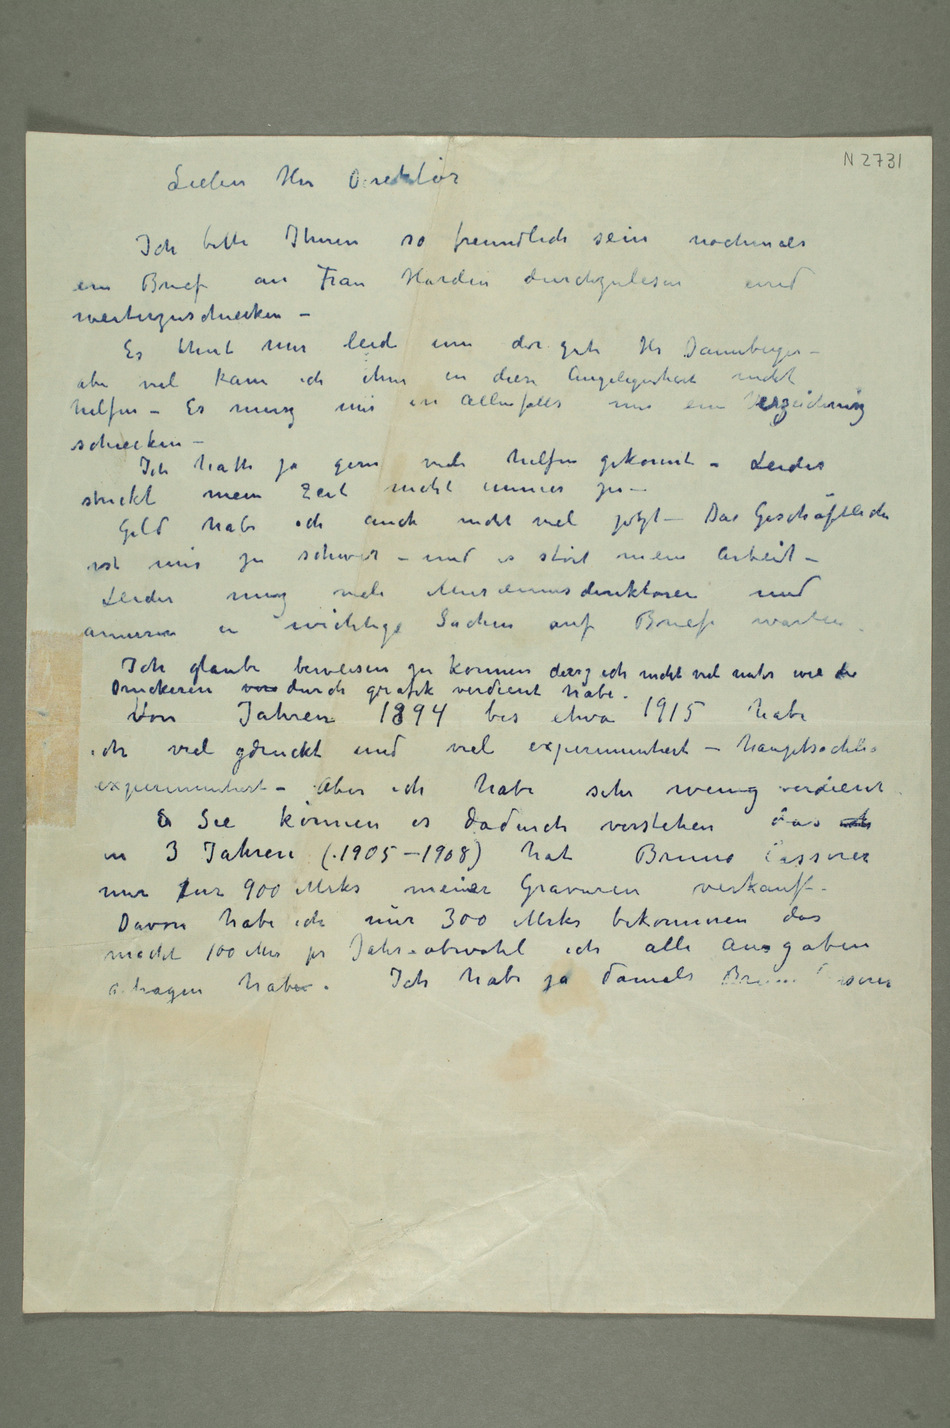 N 2731
Lieber Herr Direktör
Ich bitte Ihnen so freundlich sein nochmals
ein Brief an Frau Harden durchzulesen und
weiterzuschicken –
Es thut mir leid um der gute Hr Dannberger –
aber viel kann ich ihm in diese Angelegenheit nicht
helfen – Er musz mir in Allenfalls nur ein Verzeichnisz
schicken –
Ich hatte ja gern viele helfen gekonnt – Leider
streckt mein Zeit nicht immer zu –
Geld habe ich auch nicht viel jetzt – Das Geschäftliche
ist mir zu schwer – und es stört meine Arbeit –
Leider musz viele Museumsdirektoren und
anderen in wichtige Sachen auf Briefe warten.
Ich glaube beweisen zu können dasz ich nicht viel unter wie die
Druckeren durch grafik verdient habe.
Von Jahren 1894 bis etwa 1915 habe
ich viel gedruckt und viel experimentiert – hauptsächlich
experimentiert – Aber ich habe sehr wenig verdient.
Sie können es dadurch verstehen das
in 3 Jahren (1905–1908) hat Bruno Cassirer
nur für 900 Mrks meiner Gravuren verkauft –
Davon habe ich nur 300 Mrks bekommen das
macht 100 Mrs pr Jahr – obwohl ich alle Ausgaben
getragen habe. Ich habe ja damals Bruno Cassirer